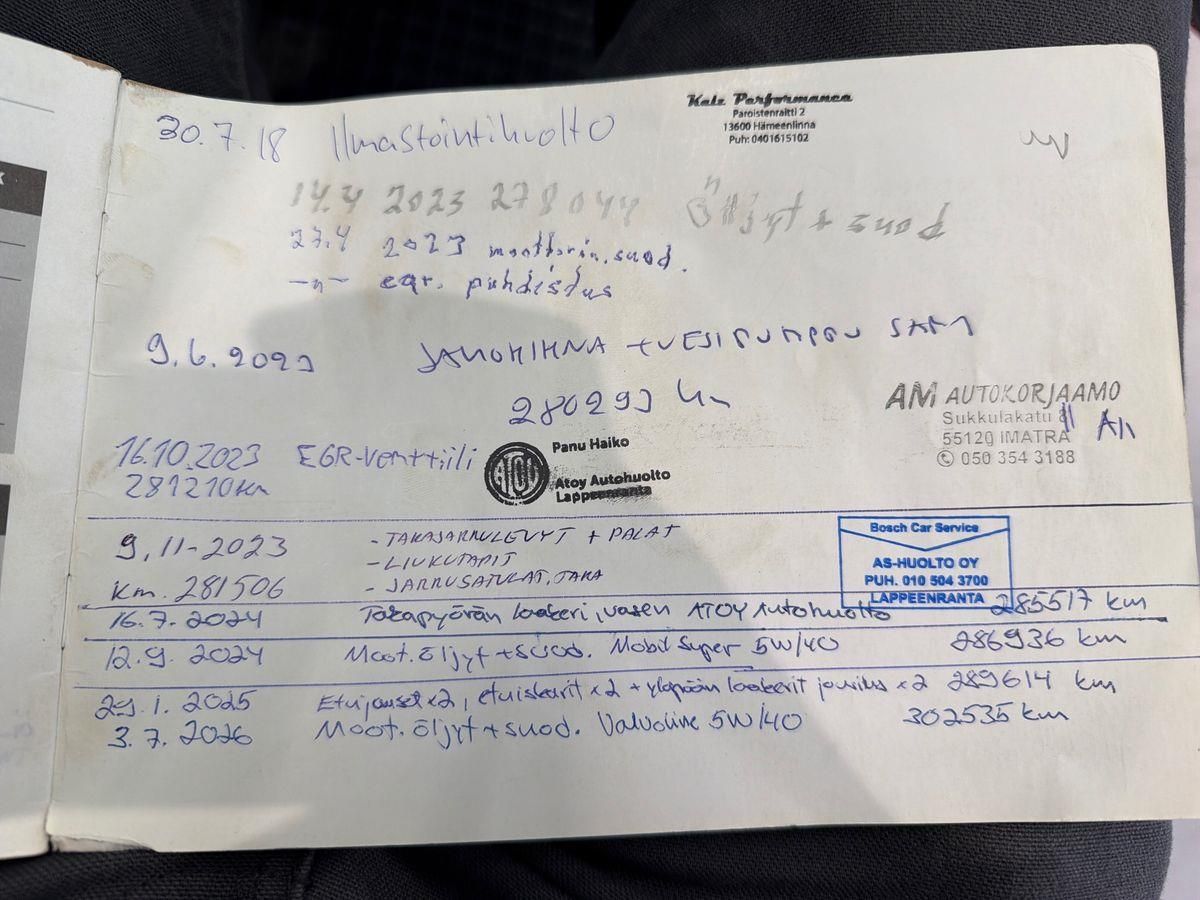 Kalz Performance
Paroistenraitti 2
13600 Hämeenlinna
Puh: 0401615102
30.7.18 Ilmastointihuolto
14.4 2023 278044 Öljyt + suod
27.4 2023 moottorin.suod.
-"- egr. puhdisdus
9.6.2023 JAKOHIHNA + VESIPUMPPU
280293 km
AM AUTOKORJAAMO
Sukkulakatu
55120 IMATRA
050 354 3188
16.10.2023 EGR-venttiili
281210km
Panu Haiko
ATOY
Atoy Autohuolto
Lappeenranta
9.11-2023 - TAKAJARRULEVYT + PALAT
- LIUKUTAPIT
km. 281506 - JARRUSATULAT, TAKA
Bosch Car Service
AS-HUOLTO OY
PUH. 010 504 3700
LAPPEENRANTA
16.7. 2024 Takapyörän laakeri, vasen ATOY Autohuolto 285517 km
12.9. 2024 Moot.öljyt + suod. Mobil Super 5W/40 286936 km
29.1. 2025 Etujouset x2, etuiskarit x2 + yläpään laakerit x2 289614 km
3.7. 2026 Moot. öljyt + suod. Valvoline 5W/40 302535 km